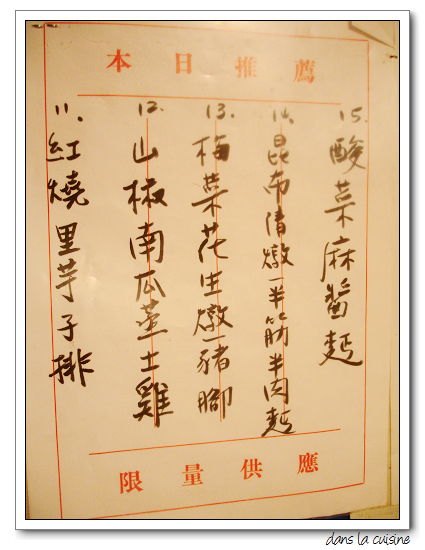 本日推薦
11. 紅燒里芋子排
12. 山椒南瓜蒸土雞
13. 梅菜花生燉豬腳
14. 昆布清燉半筋半肉麵
15. 酸菜麻醬麵
限量供應
dans la cuisine